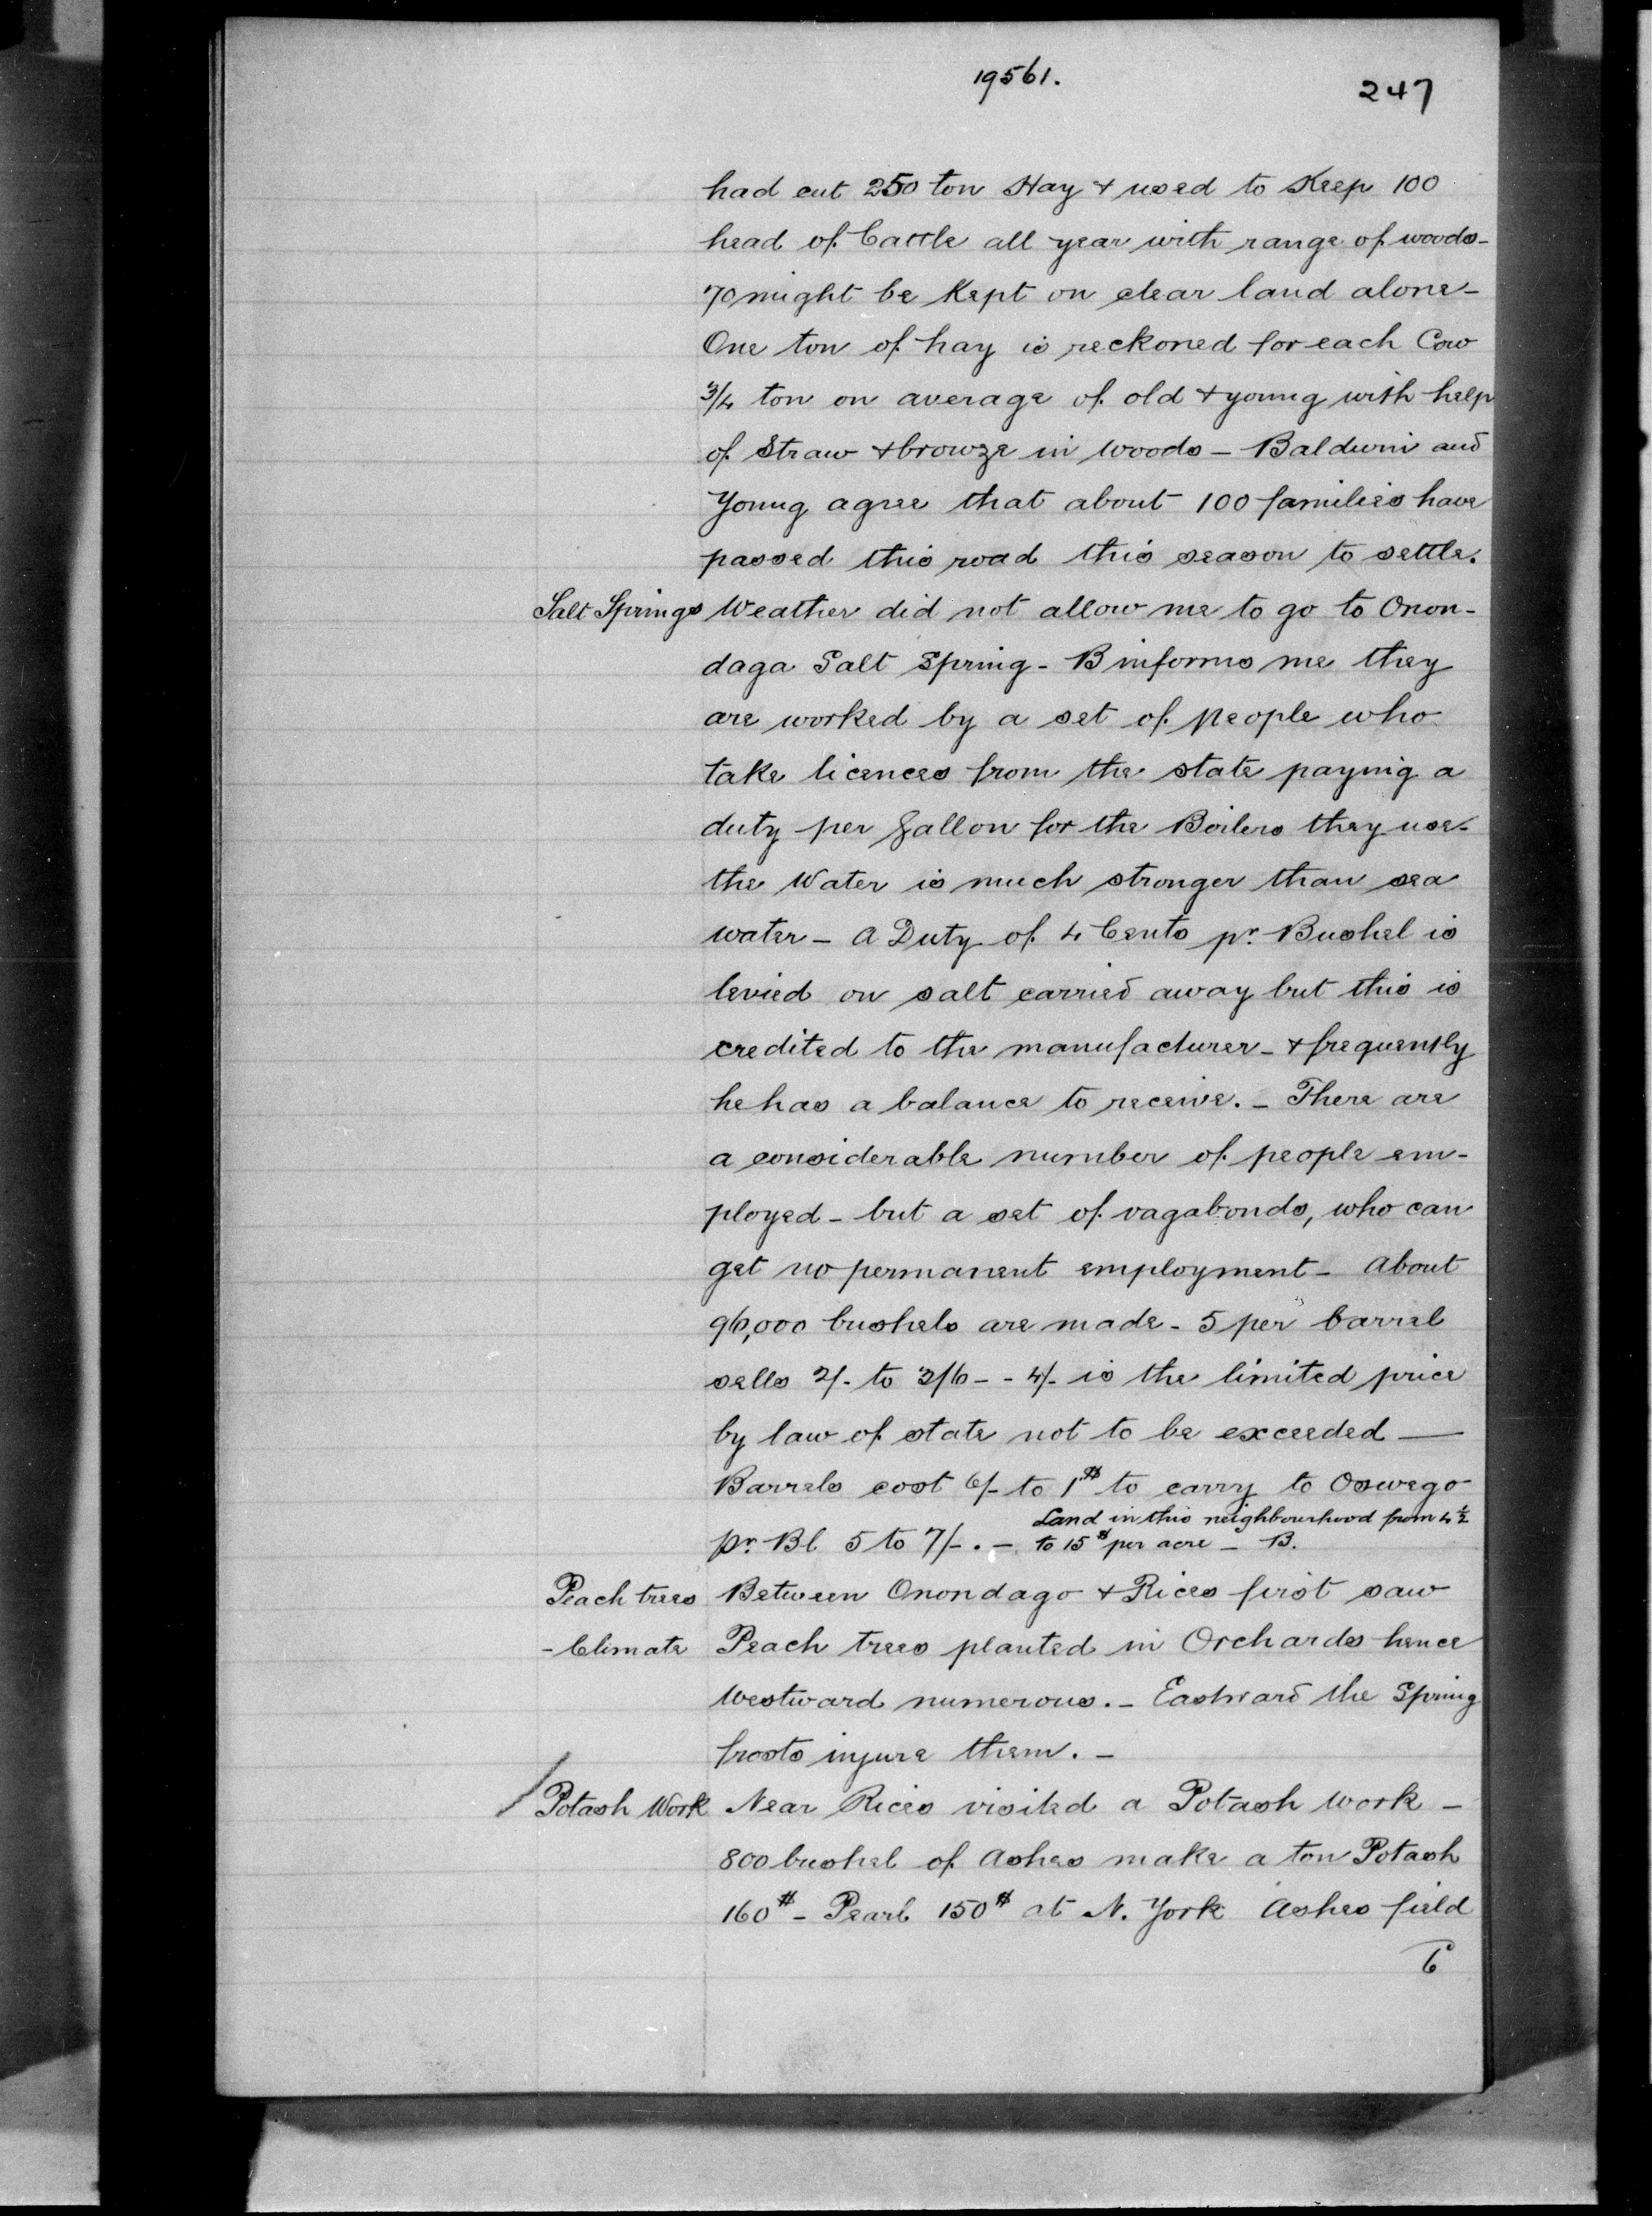 19561.
247
had cut 250 ton Hay & used to Keep 100
head of Cattle all year with range of woods-
70 might be Kept on clear land alone-
One ton of hay is reckoned for each Cow
3/4 ton on average of old & young with help
of Straw & browze in woods - Baldwin and
Young agree that about 100 families have
passed this road this season to settle.
Salt Springs Weather did not allow me to go to Onon-
daga Salt Spring - B informs me they
are worked by a set of people who
take licences from the state paying a
duty per Gallon for the Boilers they use-
the Water is much stronger than sea
water - A Duty of 4 Cents pr. Bushel is
levied on salt carried away but this is
credited to the manufacturer - & frequently
he has a balance to receive. - There are
a considerable number of people em-
ployed - but a set of vagabonds, who can
get no permanent employment - About
96,000 bushels are made - 5 per barrel
sells 2/- to 2/6 - - 4/- is the limited price
by law of state not to be exceeded —
Barrels cost 6/- to 1$ to carry to Oswego
Land in this neighbourhood from 4 1/2
pr. Bl 5 to 7/-. - to 15$ per acre - B.
Peach trees Between Onondago & Rices first saw
- Climate Peach trees planted in Orchards hence
Westward numerous. - Eastward the Spring
frosts injure them. -
Potash Work Near Rices visited a Potash Work -
800 bushel of Ashes make a ton Potash
160$ - Pearl 150$ at N. York Ashes field